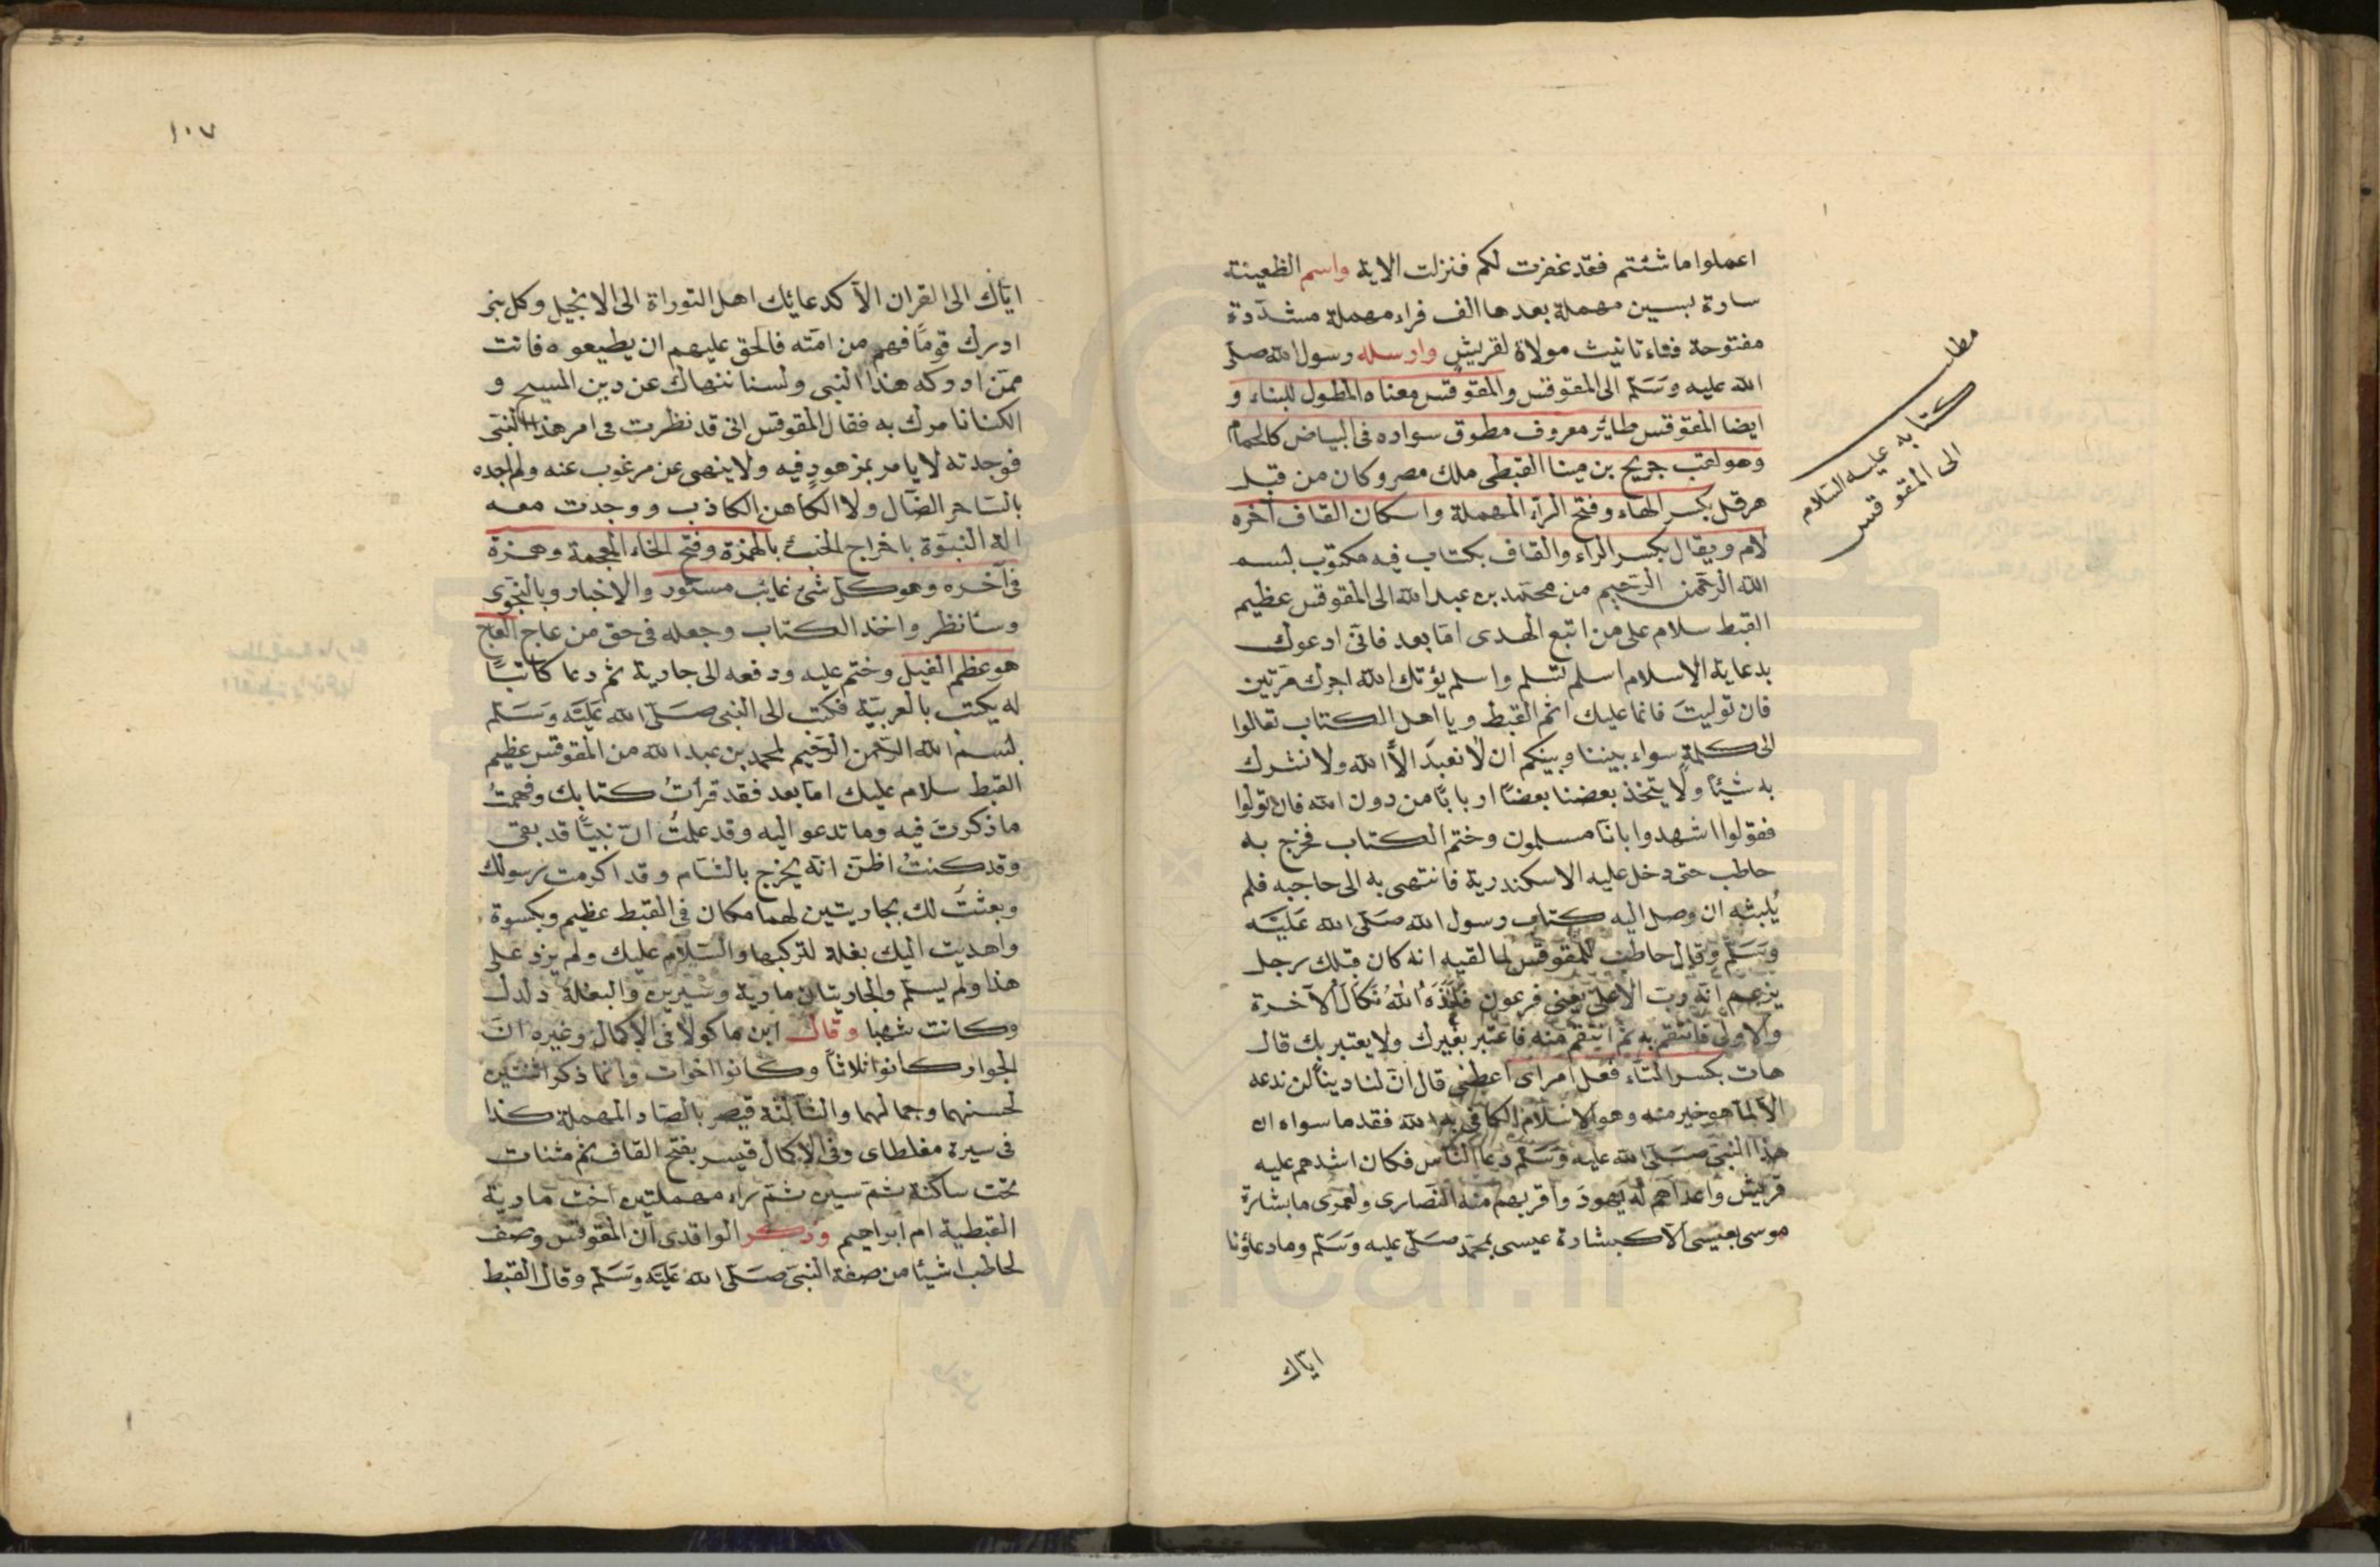 اعملوا ما شئتم فقد غفرت لكم فنزلت الاية واسم الظعينة
سارة بسين مهملة بعدها الف فراء مهملة مشددة
مفتوحة فهاء تانيث مولاة لقريش وارسله رسول الله صلى
الله عليه وسلم الى المقوقس والمقوقس معناه المطول للبناء و
ايضا المقوقس طاير معروف مطوق سواده فى البياض كالحمام
وهو لقب جريج بن مينا القبطى ملك مصر وكان من قبل
هرقل بكسر الهاء وفتح الراء المهملة واسكان القاف آخره
لام ويقال بكسر الراء والقاف بكتاب فيه مكتوب بسم
الله الرحمن الرحيم من محمد بن عبد الله الى المقوقس عظيم
القبط سلام على من اتبع الهدى اما بعد فانى ادعوك
بدعاية الاسلام اسلم تسلم واسلم يؤتك الله اجرك مرتين
فان توليت فانما عليك اثم القبط ويا اهل الكتاب تعالوا
الى كلمة سواء بيننا وبينكم ان لا نعبد الا الله ولا نشرك
به شيئا ولا يتخذ بعضنا بعضا اربابا من دون الله فان تولوا
فقولوا اشهدوا بانا مسلمون وختم الكتاب فخرج به
حاطب حتى دخل عليه الاسكندرية فانتهى به الى حاجبه فلم
يلبثه ان وصل اليه كتاب رسول الله صلى الله عليه
وسلم وقال حاطب للمقوقس لما لقيه انه كان قبلك رجل
يزعم انه رب الاعلى يعنى فرعون فاخذه الله نكال الآخرة
والاولى فانتقم به ثم انتقم منه فاعتبر بغيرك ولا يعتبر بك قال
هات بكسر التاء فعل امر اى اعطنى قال ان لنا دينا لن ندعه
الا لما هو خير منه وهو الاسلام الكافى به الله فقد ما سواه ان
هذا النبى صلى الله عليه وسلم دعا الناس فكان اشدهم عليه
قريش واعداهم له يهود واقربهم منه النصارى ولعمرى ما بشارة
موسى بعيسى الا كبشارة عيسى بمحمد صلى عليه وسلم وما دعاؤنا
اياك
مطلب
كتابه عليه السلام
الى المقوقس
١٠٧
اياك الى القران الا كدعائك اهل التوراة الى الانجيل وكل نبى
ادرك قوما فهم من امته فالحق عليهم ان يطيعوه فانت
ممن ادركه هذا النبى ولسنا ننهاك عن دين المسيح و
لكنا نامرك به فقال المقوقس انى قد نظرت فى امر هذا النبى
فوجدته لا يامر بمزهود فيه ولا ينهى عن مرغوب عنه ولم اجده
بالساحر الضال ولا الكاهن الكاذب ووجدت معه
الة النبوة باخراج الخبء بالهمزة وفتح الخاء المعجمة وهمزة
فى آخره وهو كل شئ غائب مستور والاخبار وبالنجوى
وسانظر واخذ الكتاب وجعله فى حق من عاج العاج
هو عظم الفيل وختم عليه ودفعه الى جارية ثم دعا كاتبا
له يكتب بالعربية فكتب الى النبى صلى الله عليه وسلم
بسم الله الرحمن الرحيم لمحمد بن عبد الله من المقوقس عظيم
القبط سلام عليك اما بعد فقد قرأت كتابك وفهمت
ما ذكرت فيه وما تدعو اليه وقد علمت ان نبيا قد بقى
وقد كنت اظن انه يخرج بالشام وقد اكرمت رسولك
وبعثت لك بجاريتين لهما مكان فى القبط عظيم وبكسوة
واهديت اليك بغلة لتركبها والسلام عليك ولم يزد على
هذا ولم يسلم والجاريتان مارية وشيرين والبغلة دلدل
وكانت شهبا وقال ابن ماكولا فى الاكمال وغيره ان
الجوار كانوا ثلاثا وكانوا اخوات وانما ذكر اثنتين
لحسنهما وجمالهما والثالثة قيصر بالصاد المهملة كذا
فى سيرة مغلطاى وفى الاكمال قيسر بفتح القاف ثم مثنات
تحت ساكنة ثم سين ثم راء مهملتين اخت مارية
القبطية ام ابراهيم وذكر الواقدى ان المقوقس وصف
لحاطب اشيئا من صفة النبى صلى الله عليه وسلم وقال القبط